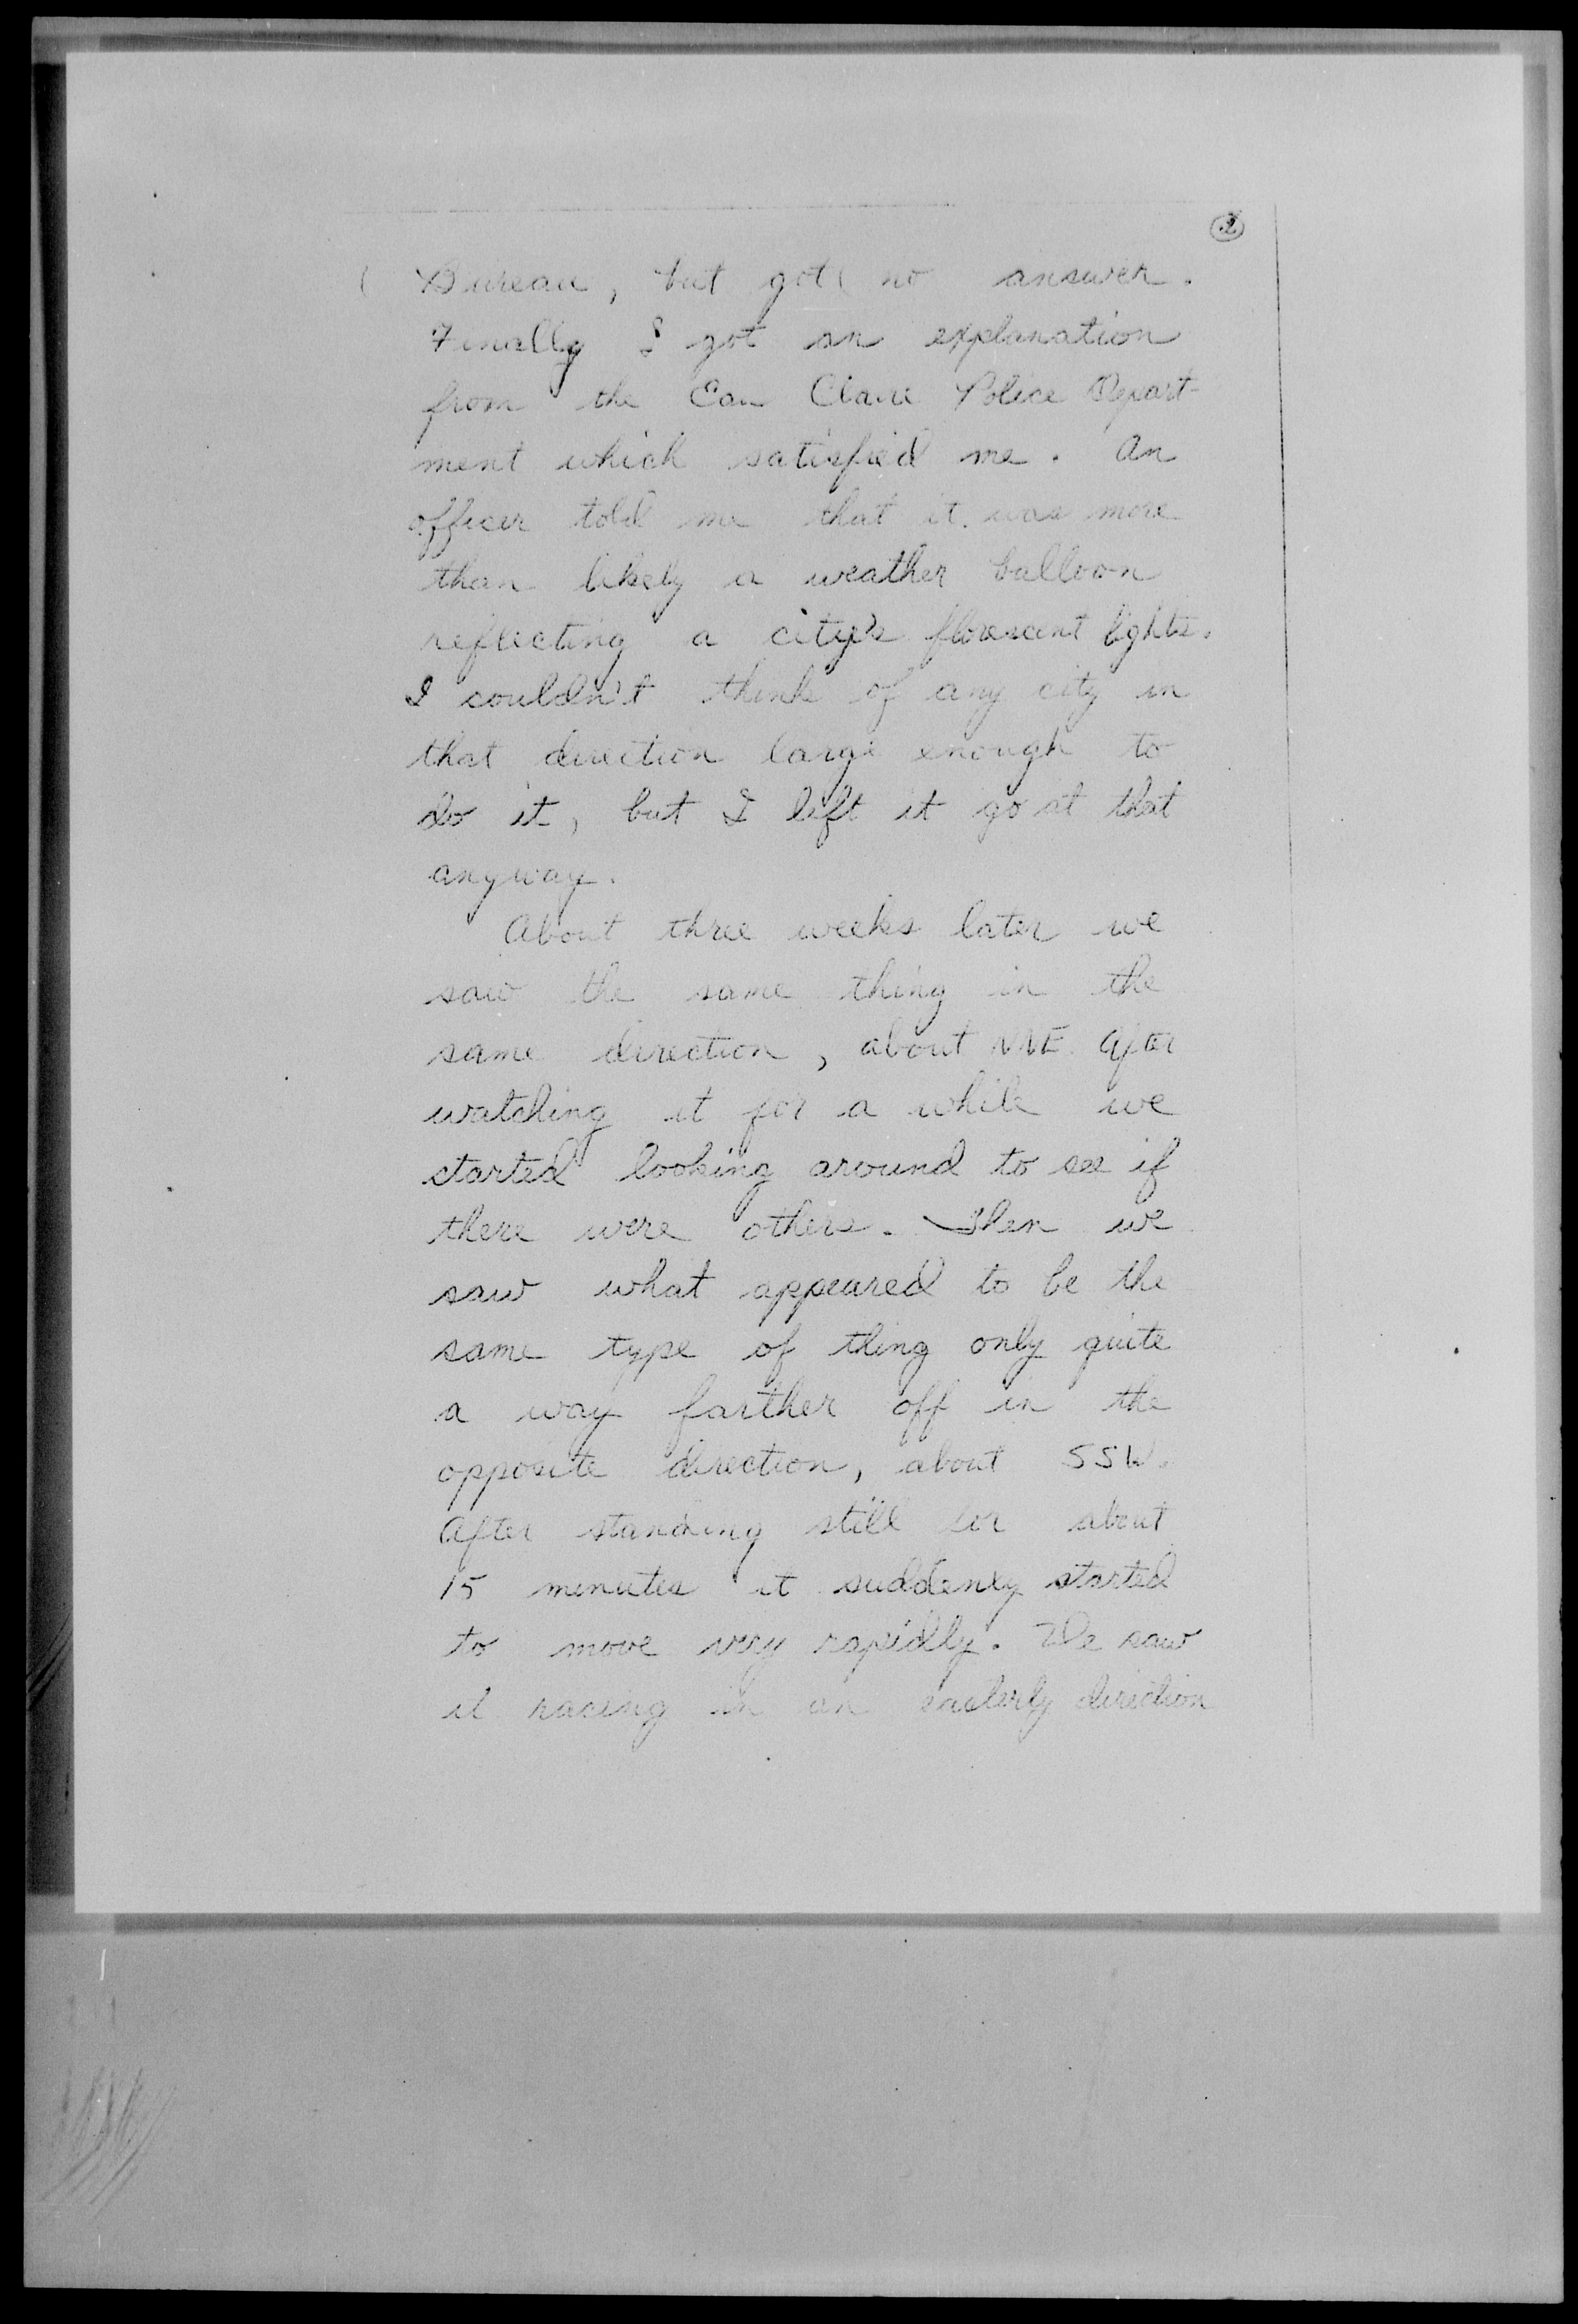 2
Bureau, but got no answer.
Finally I got an explanation
from the Eau Claire Police Depart-
ment which satisfied me. An
officer told me that it was more
than likely a weather balloon
reflecting a city's florescent lights.
I couldn't think of any city in
that direction large enough to
do it, but I left it go at that
anyway.
About three weeks later we
saw the same thing in the
same direction, about NNE. After
watching it for a while we
started looking around to see if
there were others. Then we
saw what appeared to be the
same type of thing only quite
a way farther off in the
opposite direction, about SSW.
After standing still for about
15 minutes it suddenly started
to move very rapidly. We saw
it racing in an easterly direction